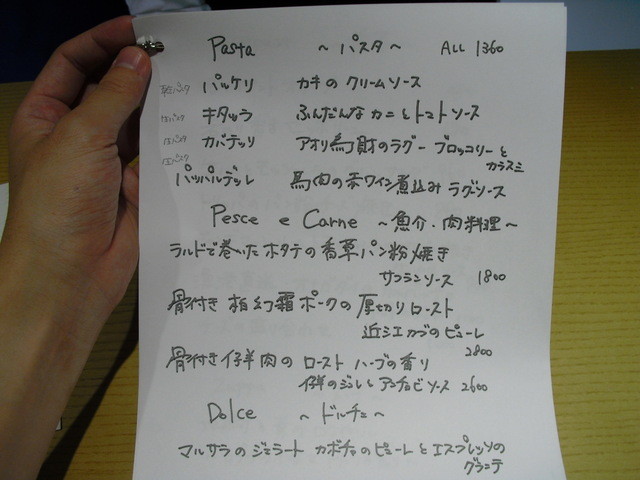 Pasta ~パスタ~ ALL 1360
パッケリ カキのクリームソース
キタッラ ふんだんなカニとトマトソース
カバテッリ アオリ烏賊のラグー ブロッコリーと
カラスミ
パッパルデッレ 馬肉の赤ワイン煮込みラグソース
Pesce e Carne ~魚介・肉料理~
ラルドで巻いたホタテの香草パン粉焼き
サフランソース 1800
骨付き 柏幻霜ポークの厚切りロースト
近江カブのピューレ
2800
骨付き仔羊肉のロースト ハーブの香り
仔羊のジュとアンチョビソース 2600
Dolce ~ドルチェ~
マルサラのジェラート カボチャのピューレとエスプレッソの
グラニテ